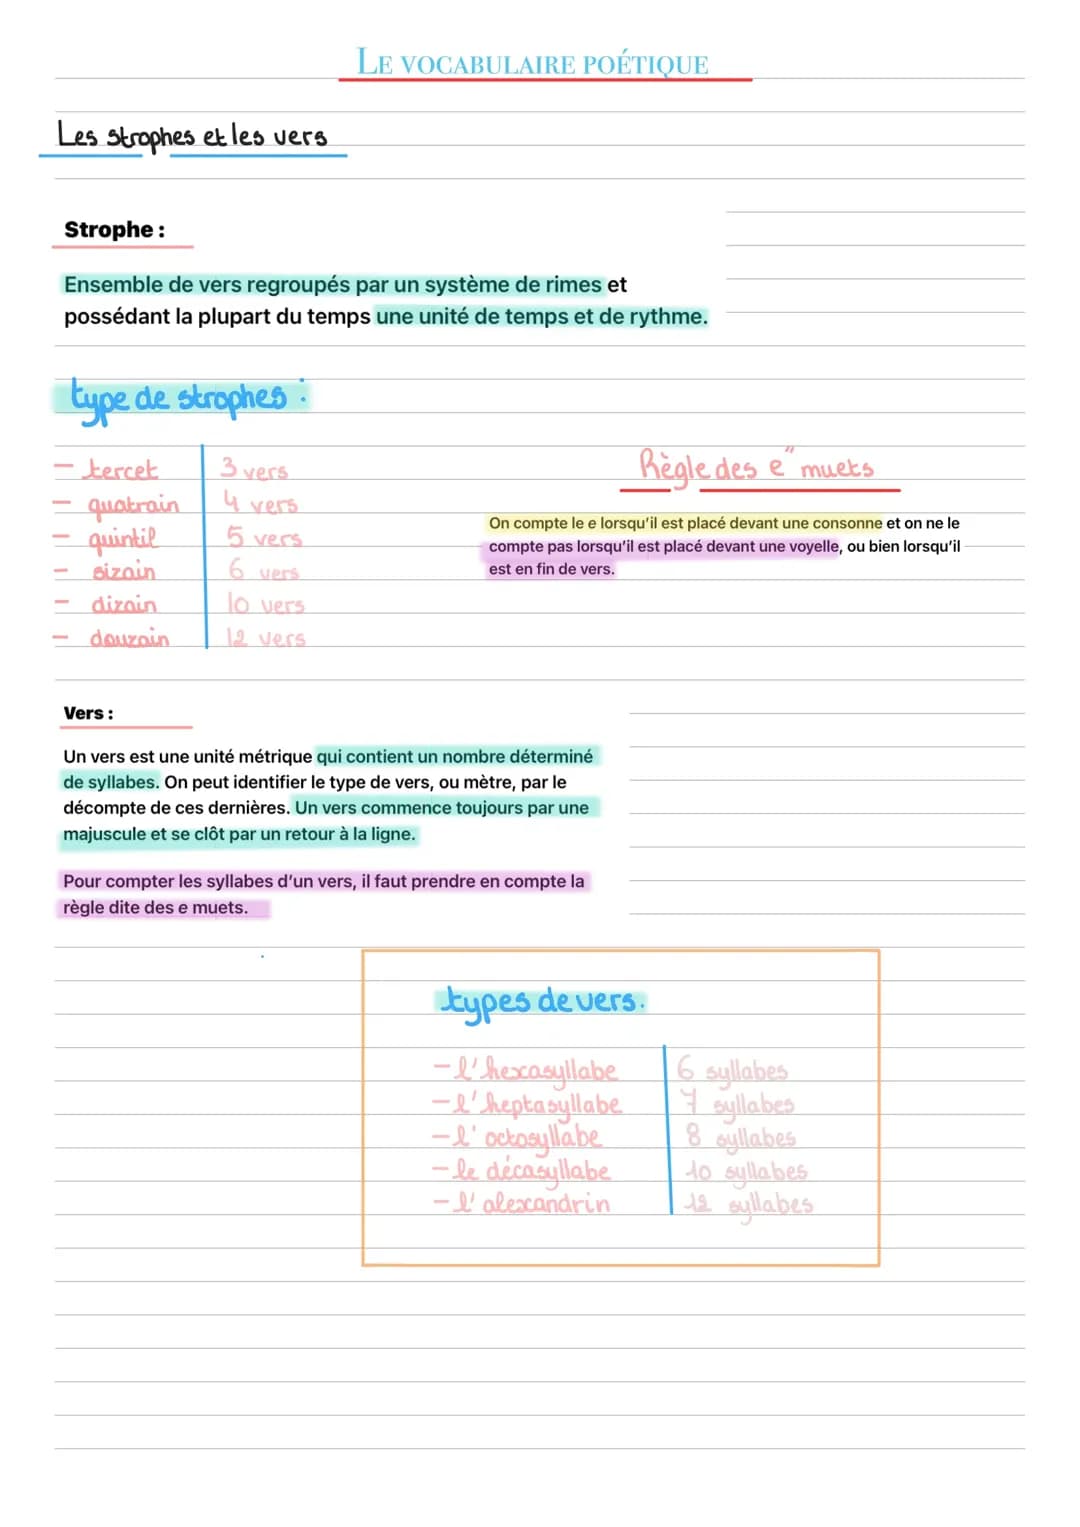 LE VOCABULAIRE POÉTIQUE
Les strophes et les vers
Strophe :
Ensemble de vers regroupés par un système de rimes et
possédant la plupart du temps une unité de temps et de rythme.
type de strophes :
- tercet 3 vers
- quatrain 4 vers
- quintil 5 vers
- sizain 6 vers
- dizain 10 vers
- douzain 12 vers
Règle des e" muets
On compte le e lorsqu'il est placé devant une consonne et on ne le
compte pas lorsqu'il est placé devant une voyelle, ou bien lorsqu'il
est en fin de vers.
Vers :
Un vers est une unité métrique qui contient un nombre déterminé
de syllabes. On peut identifier le type de vers, ou mètre, par le
décompte de ces dernières. Un vers commence toujours par une
majuscule et se clôt par un retour à la ligne.
Pour compter les syllabes d'un vers, il faut prendre en compte la
règle dite des e muets.
types de vers.
- l'hexasyllabe 6 syllabes
- l'heptasyllabe 7 syllabes
- l'octosyllabe 8 syllabes
- le décasyllabe 10 syllabes
- l'alexandrin 12 syllabes